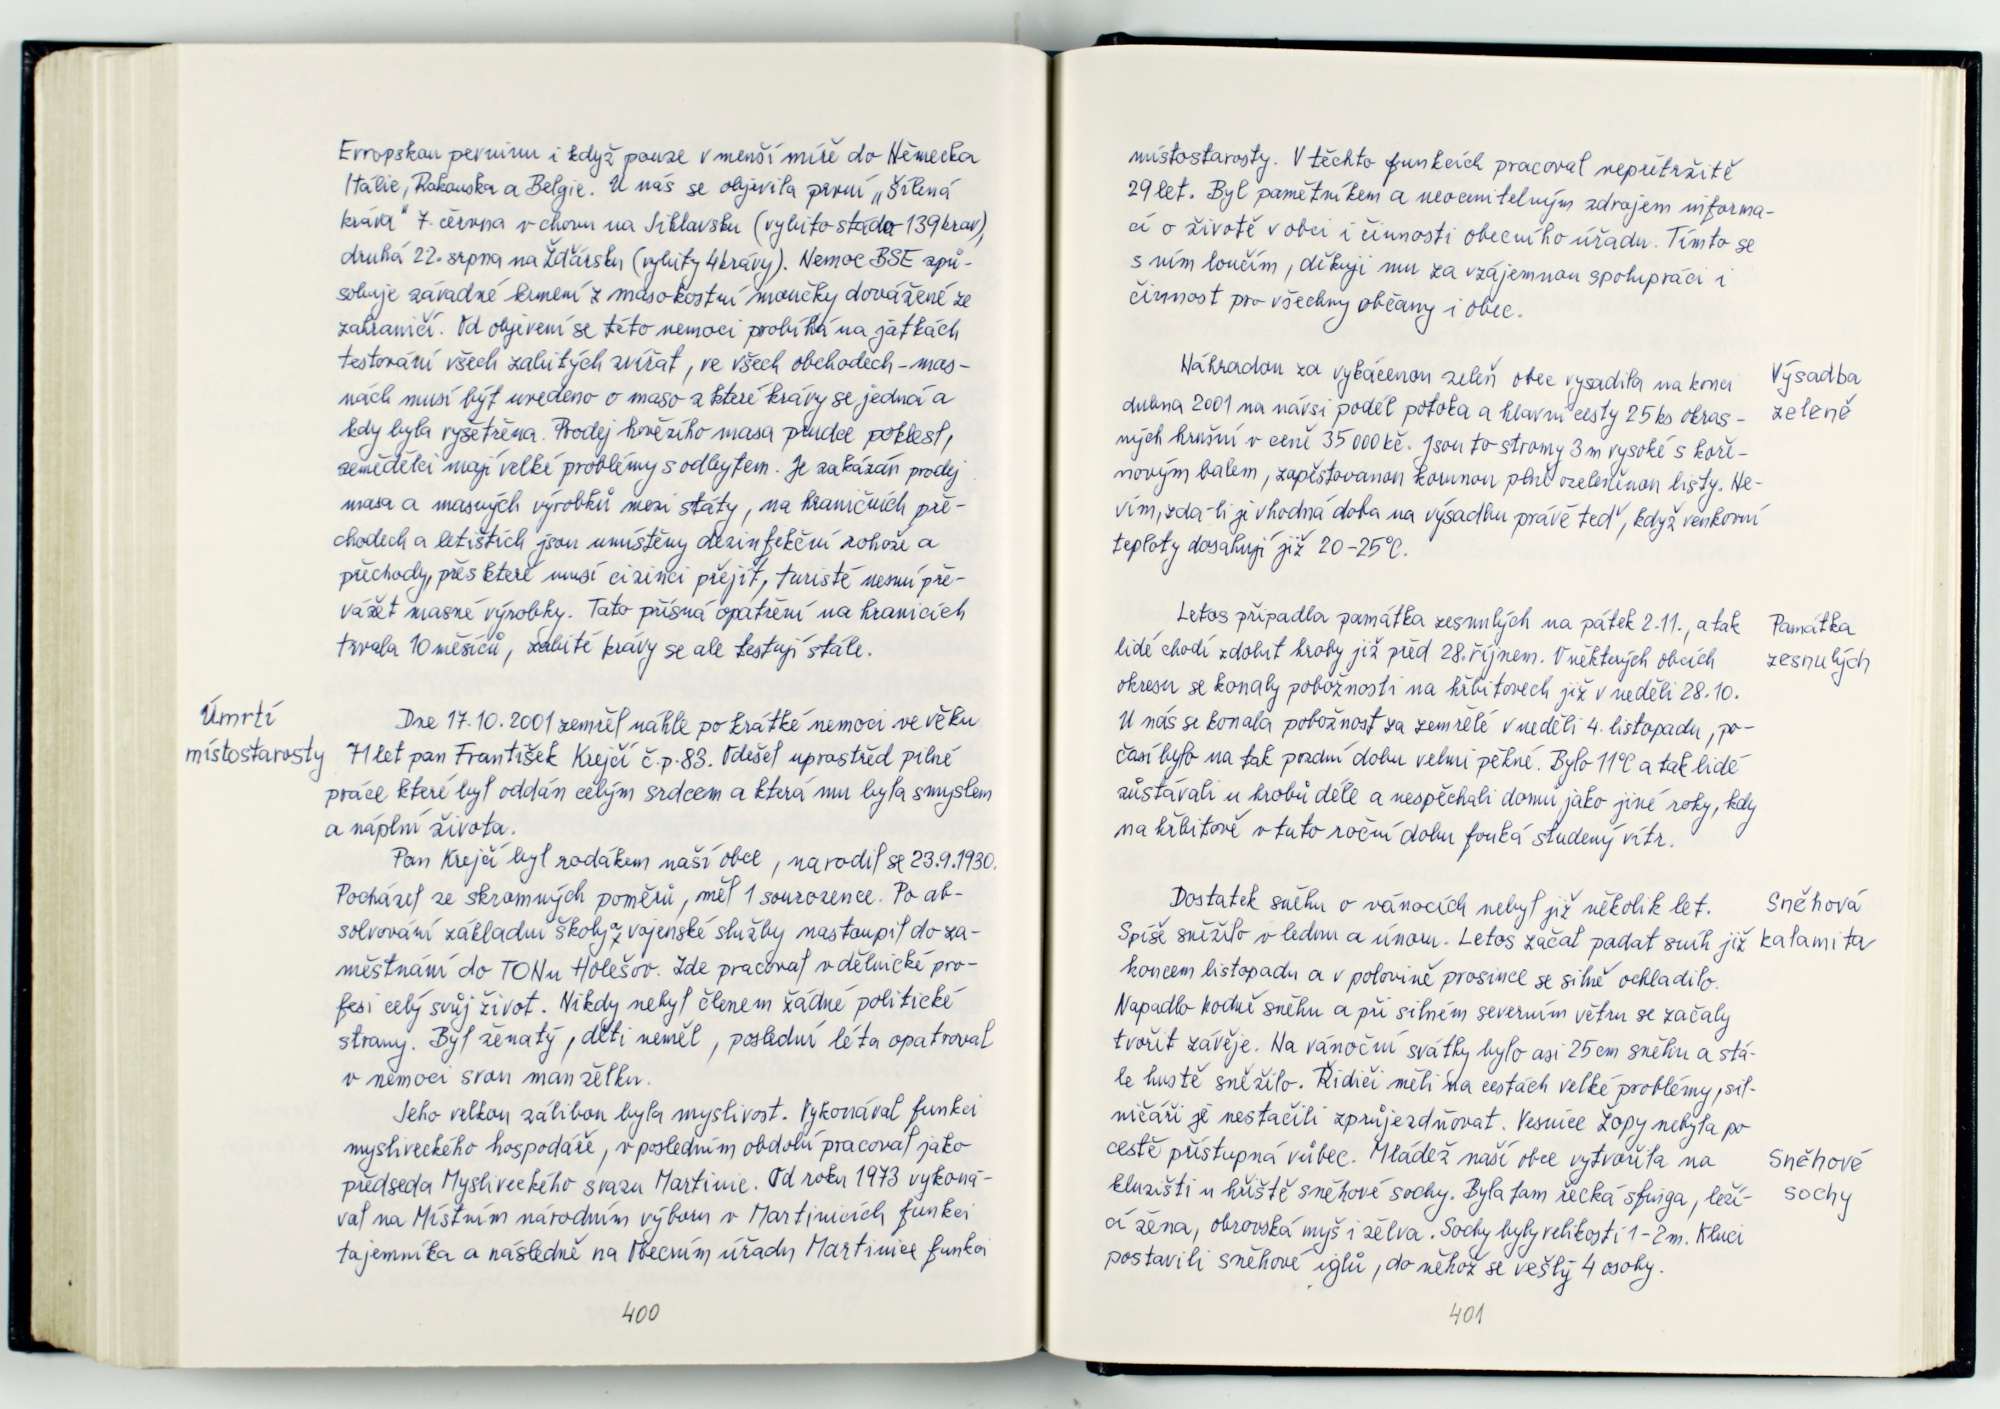 Evropskou pevninu i když pouze v menší míře do Německa
Itálie, Rakouska a Belgie. U nás se objevila první „šílená
kráva" 7. června v chovu na Jihlavsku (vybito stádo 139 krav),
druhá 22. srpna na Žďársku (vybity 4 krávy). Nemoc BSE způ-
sobuje závadné krmení z masokostní moučky dovážené ze
zahraničí. Od objevení se této nemoci probíhá na jatkách
testování všech zabitých zvířat, ve všech obchodech - mas-
nách musí být uvedeno o maso z které krávy se jedná a
kdy byla vyšetřena. Prodej hovězího masa prudce poklesl,
zemědělci mají velké problémy s odbytem. Je zakázán prodej
masa a masných výrobků mezi státy, na hraničních pře-
chodech a letištích jsou umístěny dezinfekční rohože a
přechody, přes které musí cizinci přejít, turisté nesmí pře-
vážet masné výrobky. Tato přísná opatření na hranicích
trvala 10 měsíců, zabité krávy se ale testují stále.
Úmrtí
místostarosty
Dne 17.10.2001 zemřel náhle po krátké nemoci ve věku
71 let pan František Krejčí č.p. 83. Odešel uprostřed pilné
práce které byl oddán celým srdcem a která mu byla smyslem
a náplní života.
Pan Krejčí byl rodákem naší obce, narodil se 23.9.1930.
Pocházel ze skromných poměrů, měl 1 sourozence. Po ab-
solvování základní školy a vojenské služby nastoupil do za-
městnání do TONu Holešov. Zde pracoval v dělnické pro-
fesi celý svůj život. Nikdy nebyl členem žádné politické
strany. Byl ženatý, děti neměl, poslední léta opatroval
v nemoci svou manželku.
Jeho velkou zálibou byla myslivost. Vykonával funkci
mysliveckého hospodáře, v posledním období pracoval jako
předseda Mysliveckého svazu Martinice. Od roku 1973 vykoná-
val na Místním národním výboru v Martinicích funkci
tajemníka a následně na Obecním úřadu Martinice funkci
400
místostarosty. V těchto funkcích pracoval nepřetržitě
29 let. Byl pamětníkem a neocenitelným zdrojem informa-
cí o životě v obci i činnosti obecního úřadu. Tímto se
s ním loučím, děkuji mu za vzájemnou spolupráci i
činnost pro všechny občany i obec.
Výsadba
zeleně
Náhradou za vykácenou zeleň obec vysadila na konci
dubna 2001 na návsi podél potoka a hlavní cesty 25 ks okras-
ných hrušní v ceně 35 000 kč. Jsou to stromy 3 m vysoké s koře-
novým balem, zapěstovanou korunou plně ozeleněnou listy. Ne-
vím, zda-li je vhodná doba na výsadbu právě teď, když venkovní
teploty dosahují již 20-25°C.
Památka
zesnulých
Letos připadla památka zesnulých na pátek 2.11., a tak
lidé chodí zdobit hroby již před 28. říjnem. V některých obcích
okresu se konaly pobožnosti na hřbitovech již v neděli 28.10.
U nás se konala pobožnost za zemřelé v neděli 4. listopadu, po-
časí bylo na tak pozdní dobu velmi pěkné. Bylo 11°C a tak lidé
zůstávali u hrobů déle a nespěchali domů jako jiné roky, kdy
na hřbitově v tuto roční dobu fouká studený vítr.
Sněhová
kalamita
Dostatek sněhu o vánocích nebyl již několik let.
Spíše sněžilo v lednu a únoru. Letos začal padat sníh již
koncem listopadu a v polovině prosince se silně ochladilo.
Napadlo hodně sněhu a při silném severním větru se začaly
tvořit závěje. Na vánoční svátky bylo asi 25 cm sněhu a stá-
le hustě sněžilo. Řidiči měli na cestách velké problémy, sil-
ničáři je nestačili zprůjezdňovat. Vesnice Žopy nebyla po
cestě přístupná vůbec. Mládež naší obce vytvořila na
Sněhové
sochy
kluzišti u hřiště sněhové sochy. Byla tam řecká sfinga, leží-
cí žena, obrovská myš i želva. Sochy byly velikosti 1-2m. Kluci
postavili sněhové iglů, do něhož se vešly 4 osoby.
401